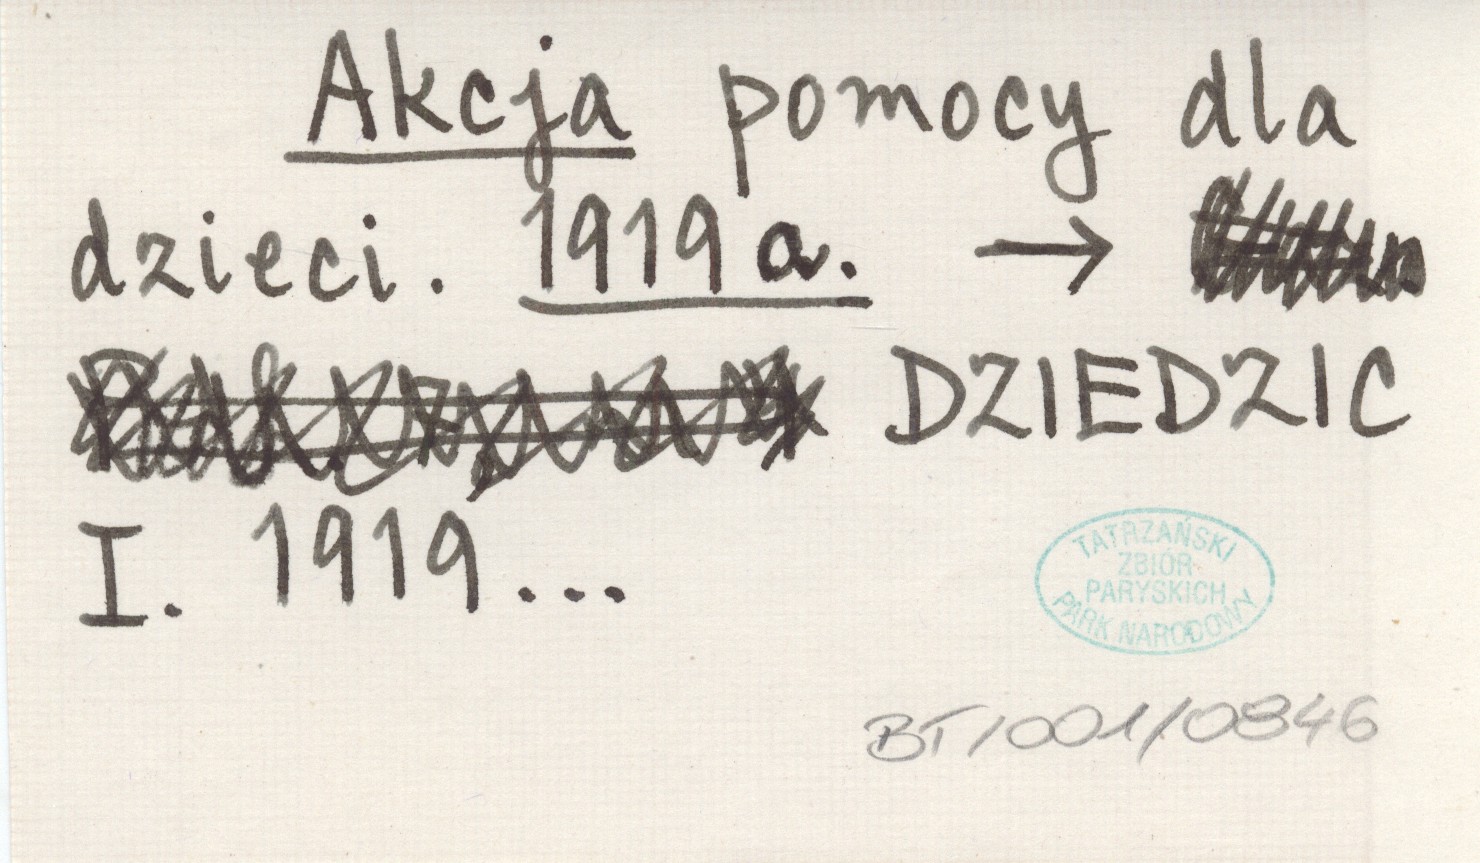 Akcja pomocy dla
dzieci. 1919 a. →
DZIEDZIC
I. 1919...
TATRZAŃSKI
ZBIÓR
PARYSKICH
PARK NARODOWY
BT/001/0846